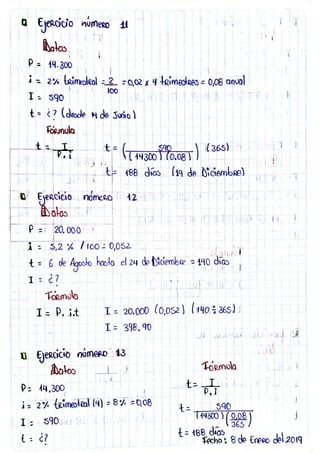 Ejercicio número 11
Datos
P = 14.300
i = 2% trimestral = 2/100 = 0,02 x 4 trimestres = 0,08 anual
I = 590
t = ¿? (desde 14 de Junio)
Fórmula
t = I / P.i t = (590 / (14300)(0.08)) (365)
t = 188 días (19 de Diciembre)
Ejercicio número 12
Datos
P = 20.000
i = 5,2 % /100 = 0,052
t = 6 de Agosto hasta el 24 de Diciembre = 140 días
I = ¿?
Fórmula
I = P. i.t I = 20,000 (0,052) (140 ÷ 365)
I = 398.90
Ejercicio número 13
Datos Fórmula
P = 14,300 t = I / P.i
i = 2% trimestral (4) = 8% = 0,08 t = 590 / (14300) (0.08 / 365)
I = 590 t = 188 días
t = ¿? Fecha: 8 de Enero del 2019